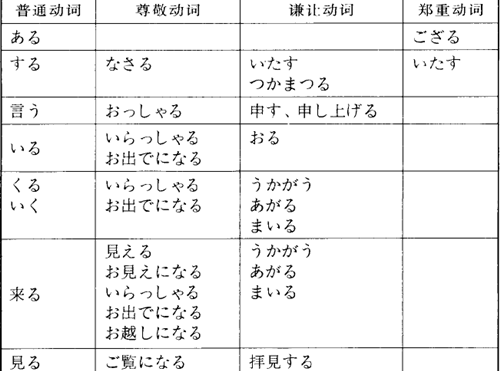 普通动词 尊敬动词 谦让动词 郑重动词
ある ござる
する なさる いたす いたす
つかまつる
言う おっしゃる 申す、申し上げる
いる いらっしゃる おる
お出でになる
くる いらっしゃる うかがう
いく お出でになる あがる
まいる
来る 見える うかがう
お見えになる あがる
いらっしゃる まいる
お出でになる
お越しになる
見る ご覧になる 拝見する